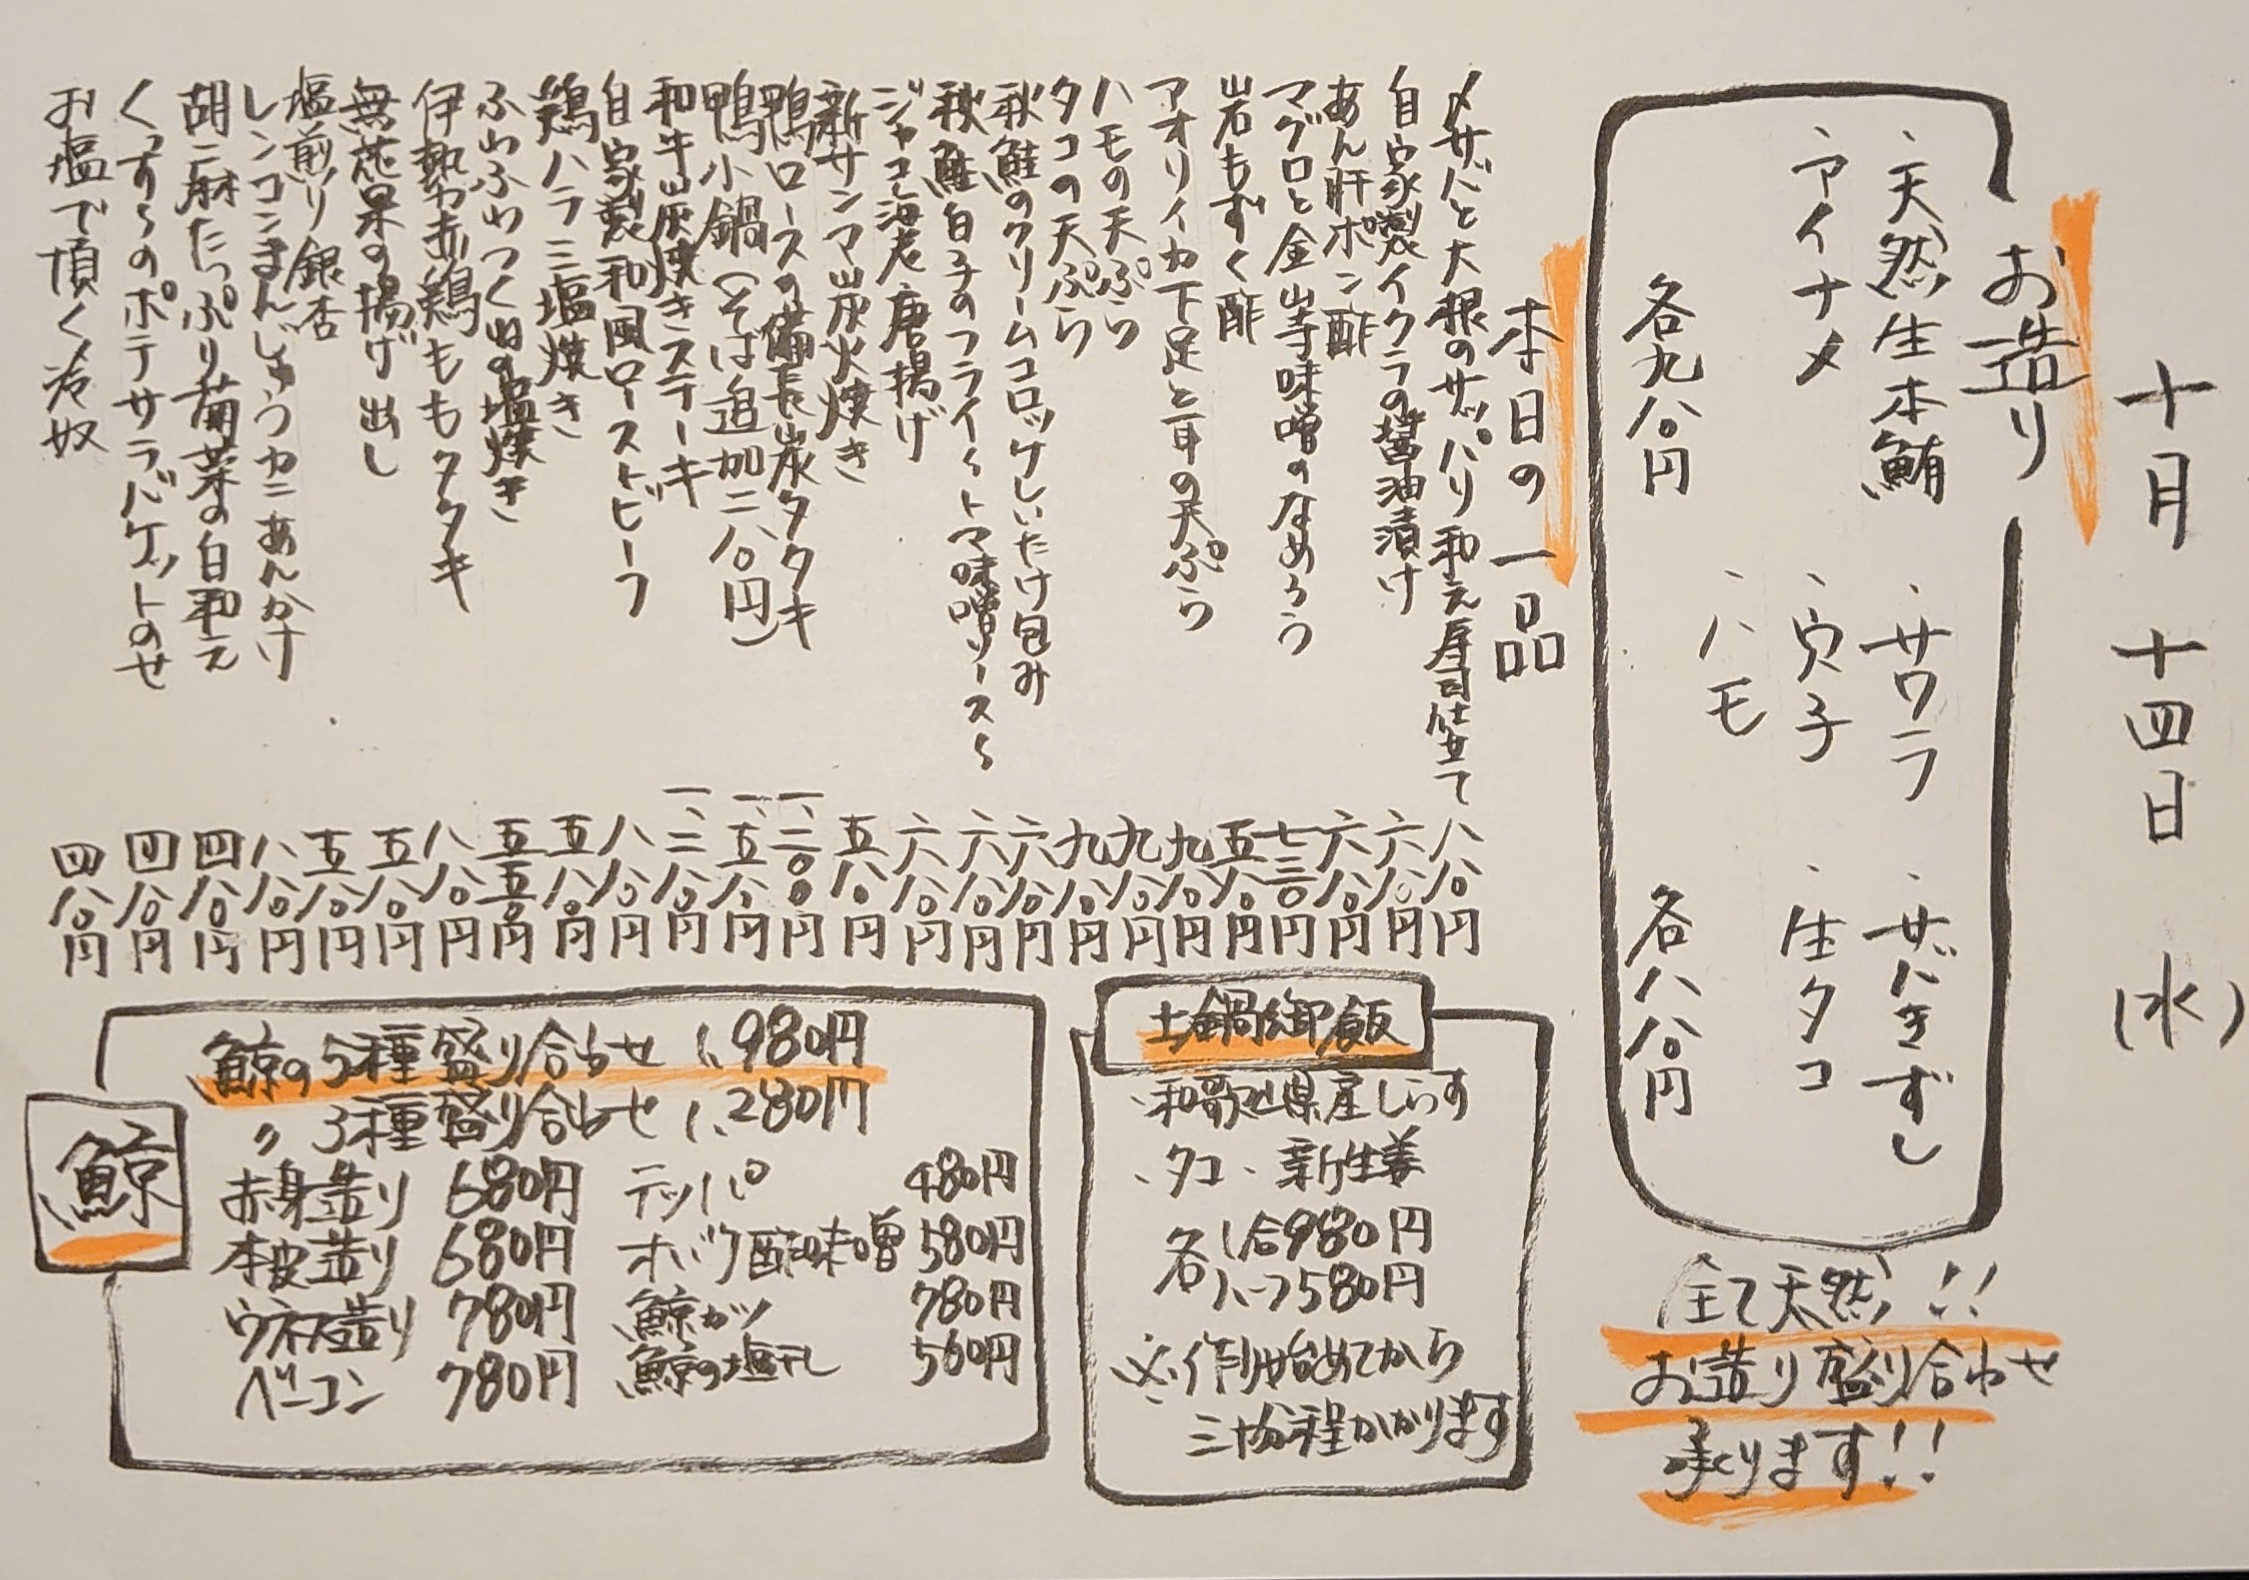 十月 十四日 (水)
お造り
・天然生本鮪 ・サワラ ・サバきずし
・アイナメ ・穴子 ・生タコ
・ハモ
各九八〇円 各八八〇円
全て天然!!
お造り盛り合わせ
承ります!!
本日の一品
〆サバと大根のサッパリ和え寿司仕立て 八八〇円
自家製イクラの醤油漬け 六八〇円
あん肝ポン酢 六八〇円
マグロと金山寺味噌のなめろう 七三〇円
岩もずく酢 五八〇円
アオリイカ下足と耳の天ぷら 九八〇円
ハモの天ぷら 九八〇円
タコの天ぷら 九八〇円
秋鮭のクリームコロッケしいたけ包み 六八〇円
秋鮭白子のフライ〜トマ味噌ソース〜 六八〇円
ジャコ海老唐揚げ 六八〇円
新サンマ炭火焼き 五八〇円
鴨ロースの備長炭タタキ 一、二〇〇円
鴨小鍋(そば追加二八〇円) 一、五八〇円
和牛炭焼きステーキ 一、二八〇円
自家製和風ローストビーフ 八八〇円
鶏ハラミ塩焼き 五八〇円
ふわふわつくねの塩焼き 五五〇円
伊勢赤鶏ももタタキ 八八〇円
無花果の揚げ出し 五八〇円
塩煎り銀杏 五八〇円
レンコンまんじゅうカニあんかけ 八八〇円
胡麻たっぷり菊菜の白和え 四八〇円
くっずうのポテサラバケットのせ 四八〇円
お塩で頂く冷奴 四八〇円
土鍋御飯
・和歌山県産しらす
・タコ ・新生姜
各 1合980円
ハーフ580円
※作り始めてから
三十分程かかります
鯨
鯨の5種盛り合わせ 1,980円
〃 3種盛り合わせ 1,280円
赤身造り 680円 テッパ 480円
本皮造り 680円 オバケ酢味噌 580円
ウネス造り 780円 鯨カツ 780円
ベーコン 780円 鯨の塩干し 560円